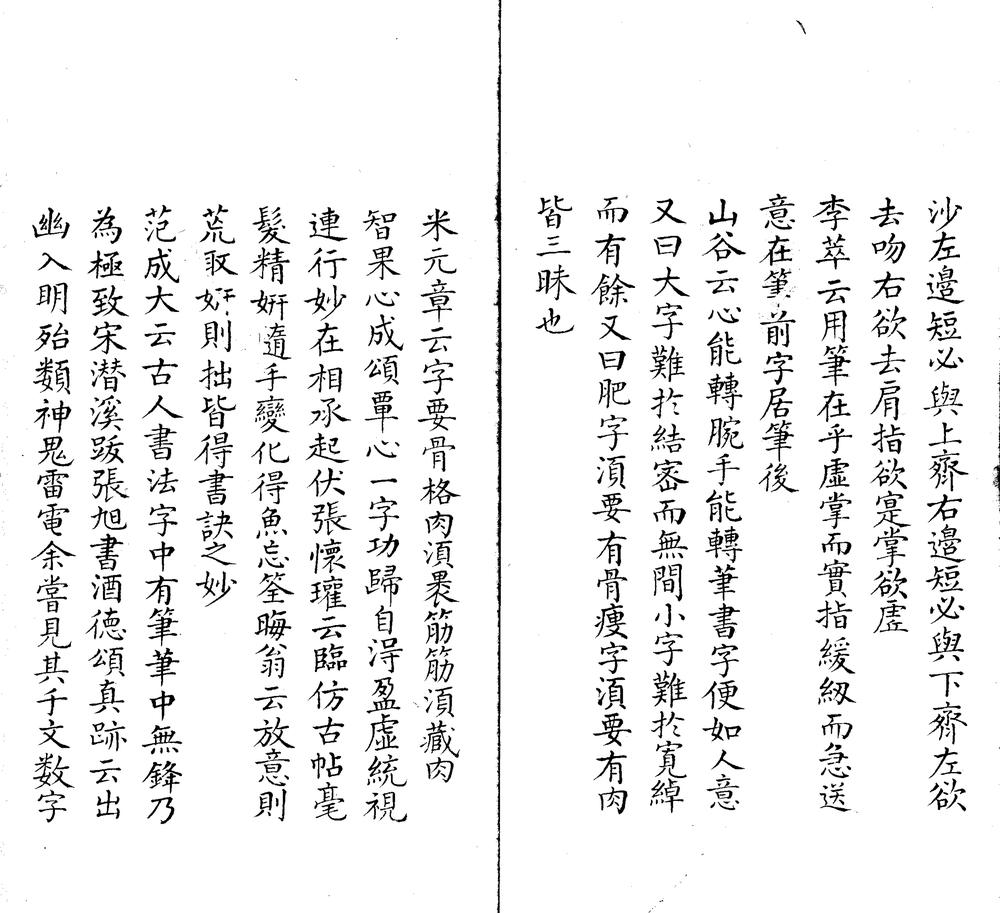 沙左邉短必與上齊右邉短必與下齊左欲
去吻右欲去肩指欲寔掌欲虛
李萃云用筆在乎虛掌而實指緩紉而急送
意在筆前字居筆後
山谷云心能轉腕手能轉筆書字便如人意
又曰大字難扵結宻而無間小字難扵寬綽
而有餘又曰肥字湏要有骨瘦字湏要有肉
皆三昧也
米元章云字要骨格肉湏褁筋筋湏藏肉
智果心成頌覃心一字功歸自得盈虛統視
連行妙在相承起伏張懷瓘云臨仿古帖毫
髮精妍隨手變化得魚忘筌晦翁云放意則
荒取妍則拙皆得書訣之妙
范成大云古人書法字中有筆筆中無鋒乃
為極致宋潜溪跋張旭書酒德頌真跡云出
幽入明殆類神鬼雷電余嘗見其千文数字